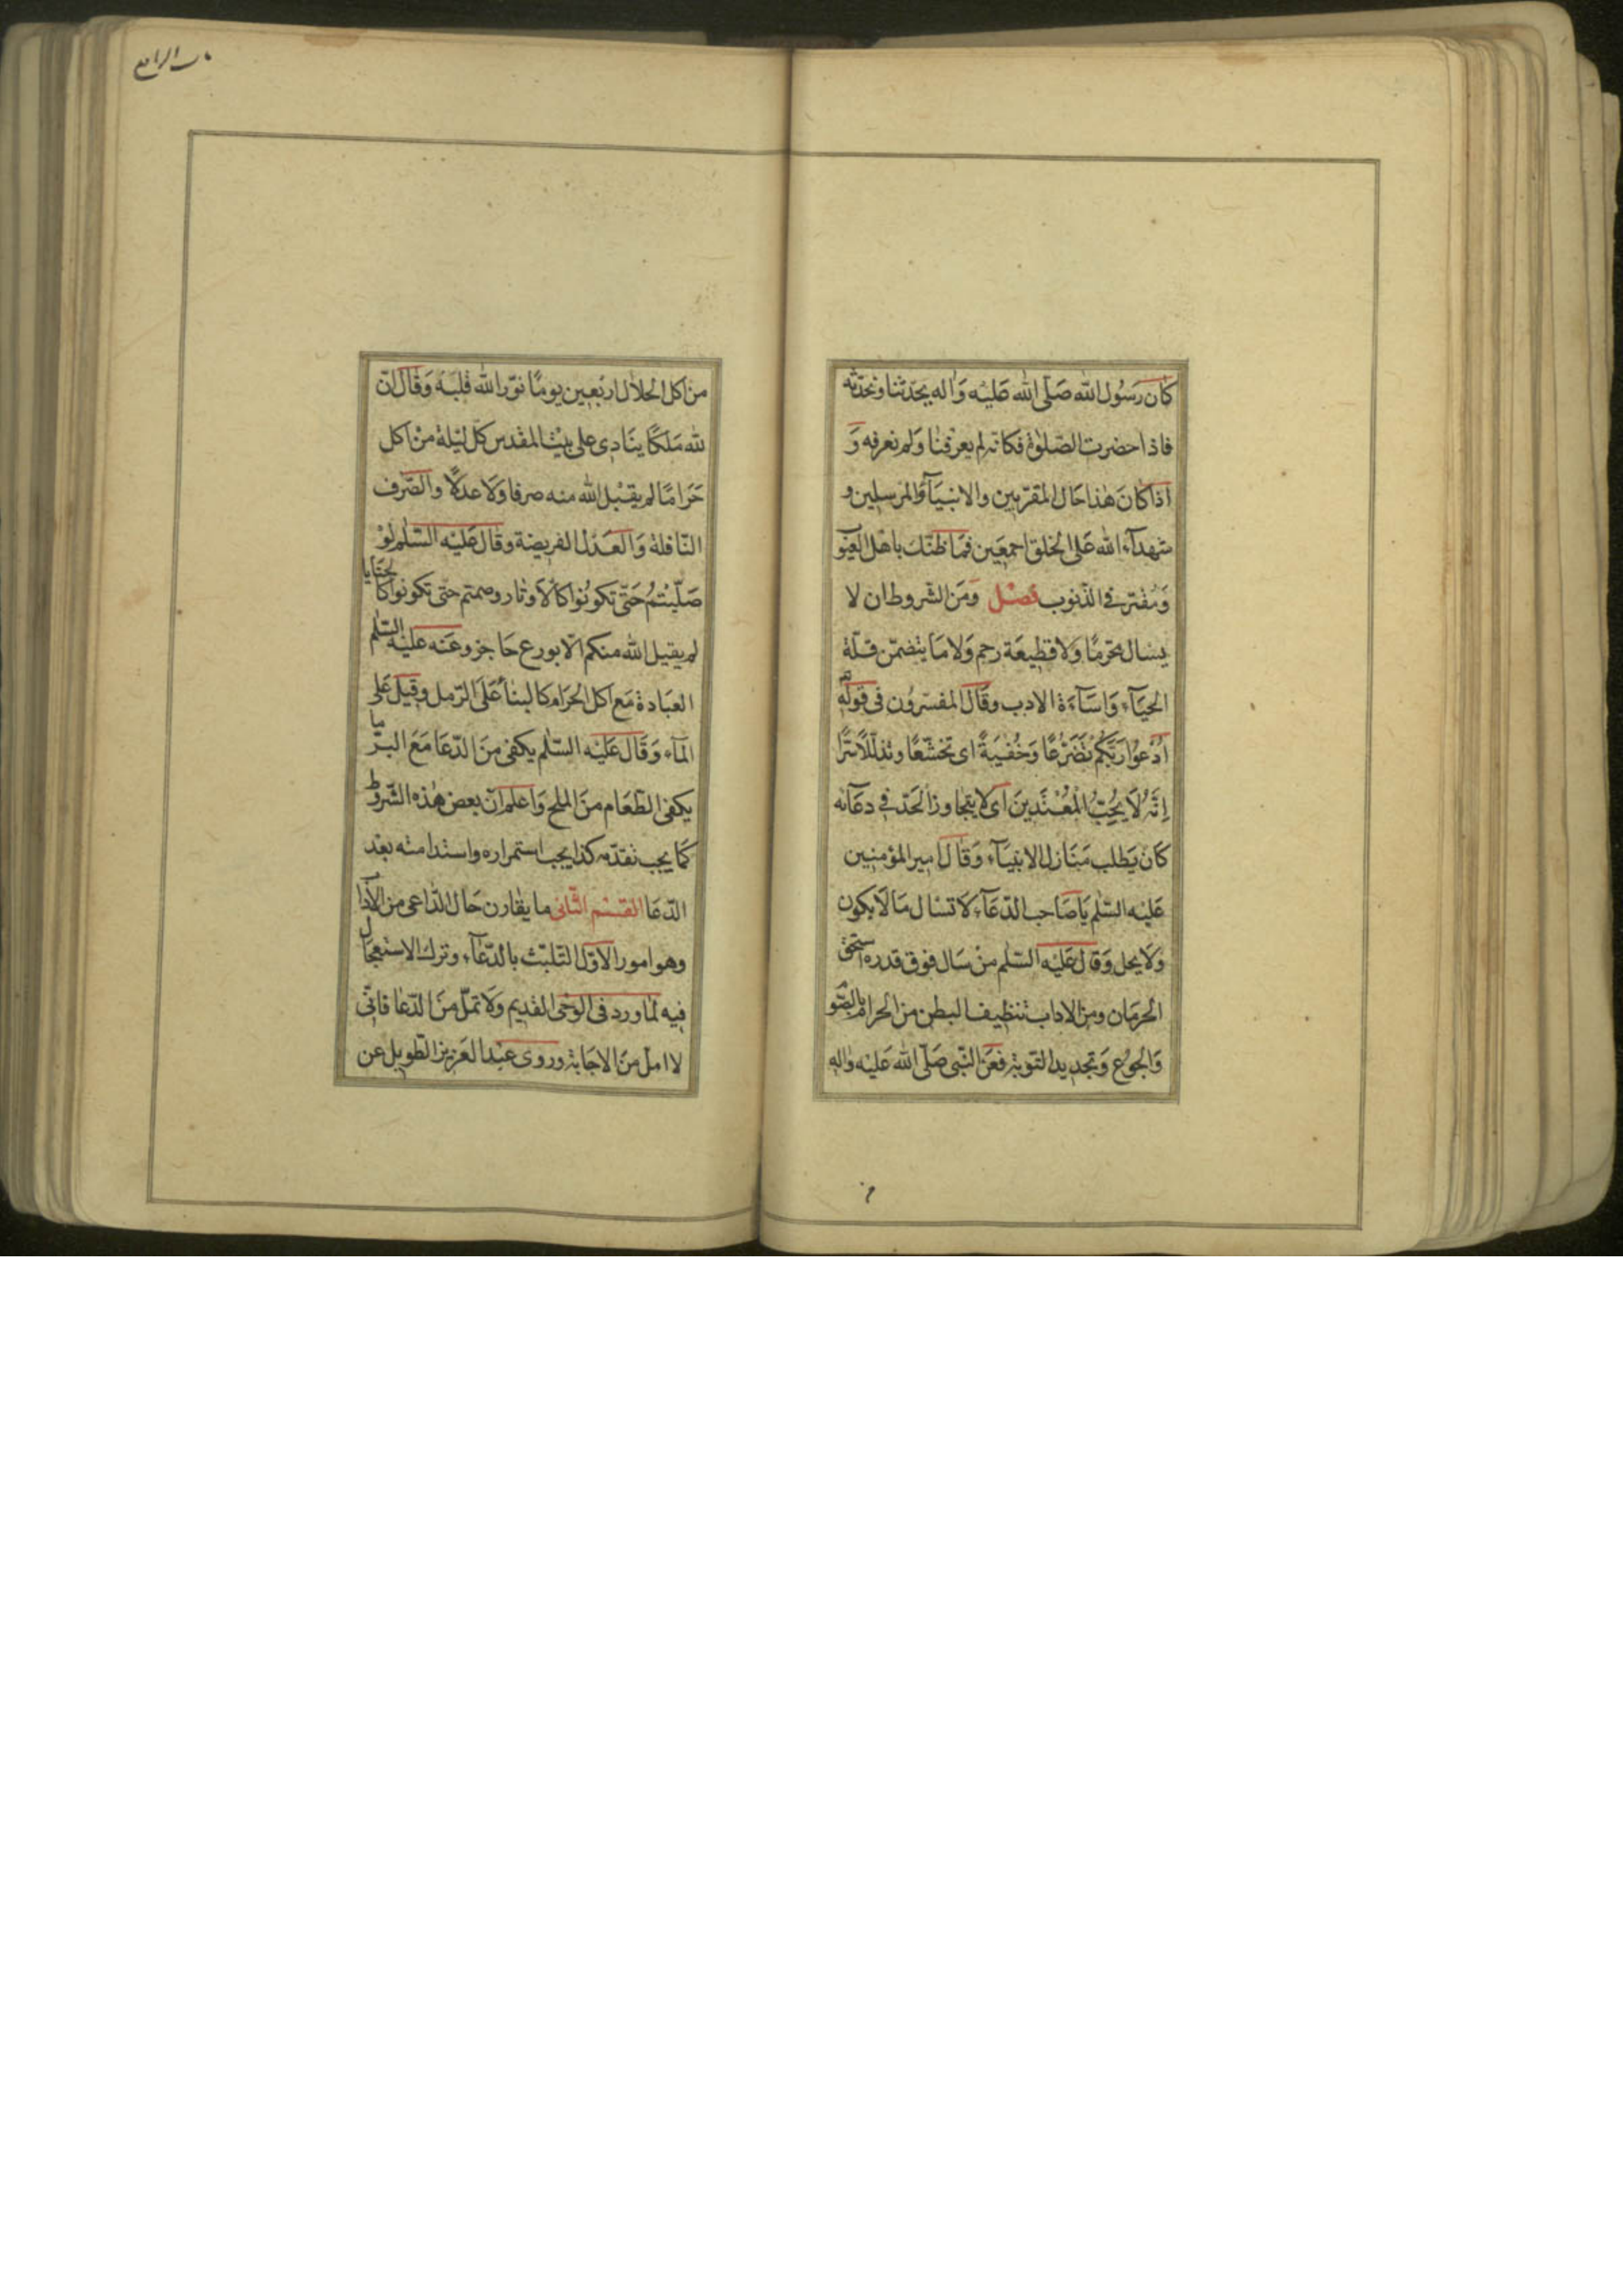 كان رسول الله صلى الله عليه واله يحدثنا ونحدثه
فاذا حضرت الصلوة فكانه لم يعرفنا ولم نعرفه و
اذا كان هذا حال المقربين والانبيآء والمرسلين و
شهدآء الله على الخلق اجمعين فما ظنك باهل العيو
ومقترفي الذنوب فصل ومن الشروط ان لا
يسال محرما ولا قطيعة رحم ولا ما يتضمن قلة
الحيآء واسآءة الادب وقال المفسرون في قوله
ادعوا ربكم تضرعا وخفية اى تخشعا وتذللا سرا
انه لا يحب المعتدين اى لا يتجاوز الحد في دعآئه
كان يطلب منازل الانبيآء وقال امير المؤمنين
عليه السلم يا صاحب الدعآء لا تسال ما لا يكون
ولا يحل وقال عليه السلم من سال فوق قدره استحق
الحرمان ومن الاداب تنظيف البطن من الحرام بالصو
والجوع وتجديد التوبة فعن النبى صلى الله عليه واله
من اكل الحلال اربعين يوما نور الله قلبه وقال ان
لله ملكا ينادى على بيت المقدس كل ليلة من اكل
حراما لم يقبل الله منه صرفا ولا عدلا والصرف
النافلة والعدل الفريضة وقال عليه السلم لو
صليتم حتى تكونوا كالاوتار وصمتم حتى تكونوا كالحنايا
لم يقبل الله منكم الا بورع حاجز وعنه عليه السلم
العبادة مع اكل الحرام كالبنآء على الرمل وقيل على
المآء وقال عليه السلم يكفى من الدعا مع البر ما
يكفى الطعام من الملح واعلم ان بعض هذه الشروط
كما يجب تقدمه كذا يجب استمراره واستدامته بعد
الدعا القسم الثانى ما يقارن حال الداعى من الآدا
وهو امور الاول التلبث بالدعآء وترك الاستعجال
فيه لما ورد فى الوحى القديم ولا تمل من الدعا فانى
لا امل من الاجابة وروى عبد العزيز الطويل عن